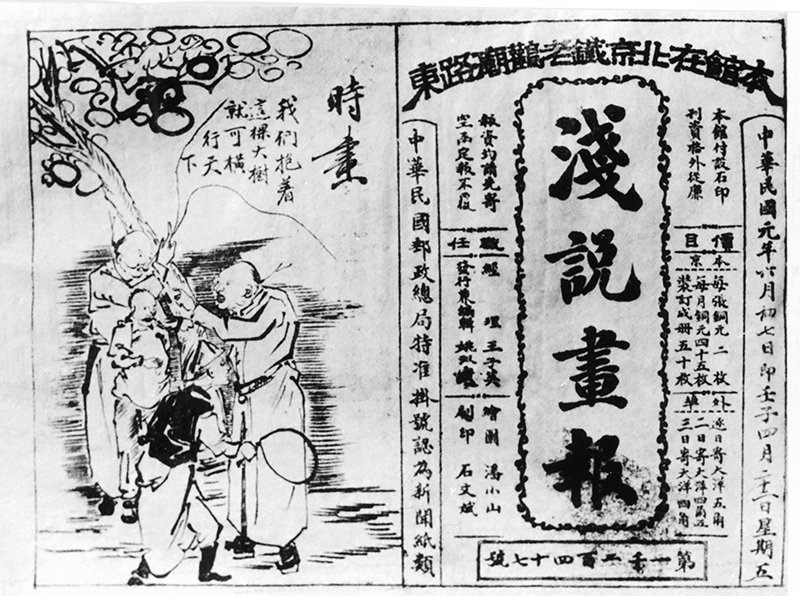 本館在北京鐵老鸛廟路東
中華民國元年六月初七日即壬子四月二十二日星期五
本館付設石印
刊資格外從廉
價目
本京
每張銅元二枚
每月銅元四十五枚
裝訂成册五十枚
外埠
逐日寄大洋五角
二日寄大洋四角五
三日寄大洋四角
淺說畫報
第一千二百四十七號
報資均請先寄
空函定報不覆
職任
經理 王子英
發行兼編輯 姚
繪圖 小山
刻印 石文斌
中華民國郵政總局特准掛號認為新聞紙類
時畫
我們抱着
這棵大樹
就可橫
行天
下